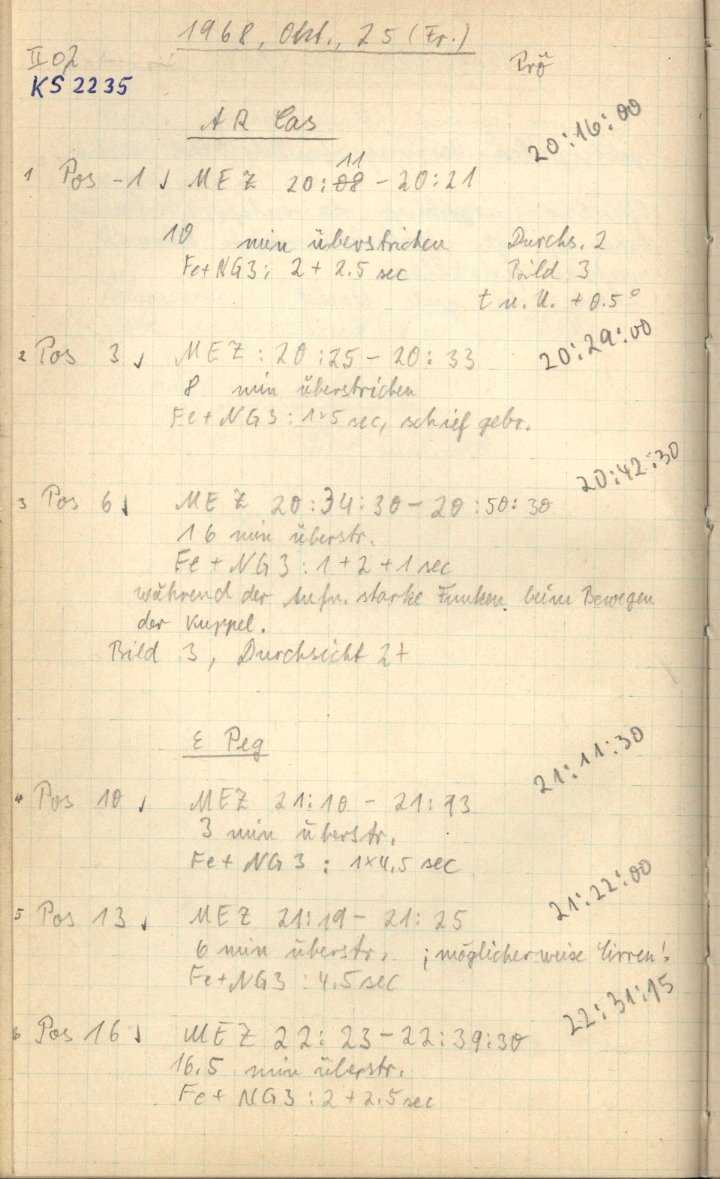 1968, Okt., 25 (Fr.)
II 02
Prö
KS 2235
AR Cas
20:16:00
11
1 Pos -1 MEZ 20:08 - 20:21
10 min überstrichen Durchs. 2
Fe+NG3: 2+2.5 sec Bild 3
t u. U. +0.5°
20:29:00
2 Pos 3 MEZ: 20:25 - 20:33
8 min überstrichen
Fe+NG3: 1×5 sec, schief gebr.
20:42:30
3 Pos 6 MEZ 20:34:30 - 20:50:30
16 min überstr.
Fe+NG3: 1+2+1 sec
während der Aufn. starke Funken beim Bewegen
der Kuppel.
Bild 3, Durchsicht 2+
ε Peg
21:11:30
4 Pos 10 MEZ 21:10 - 21:13
3 min überstr.
Fe+NG3: 1×4,5 sec
21:22:00
5 Pos 13 MEZ 21:19 - 21:25
6 min überstr. ; möglicherweise Cirren!
Fe+NG3: 4.5 sec
22:31:15
6 Pos 16 MEZ 22:23 - 22:39:30
16.5 min überstr.
Fe+NG3: 2+2.5 sec